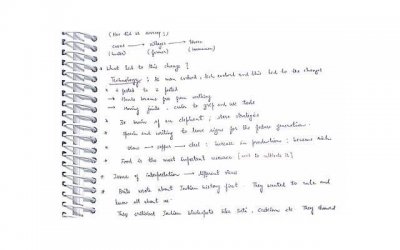 (How did we arrive?)
cave → village → town
(hunter) (farmer) (townsman)
* What led to this change?
Technology: As man evolved, tech evolved and this led to the changes
* 4 footed to 2 footed
→ brain for
→ joints, easier to grip and use tools
* of an elephant, more strategies
* Speech and writing to leave signs for the future generation.
* → copper → steel: increase in production: become rich
* Food is the most important resource
* Issue of interpretation → different views
* Brits wrote about Indian history first. They wanted to rule and
know all about us.
They criticised Indian like Sati, Casteism etc. They showed